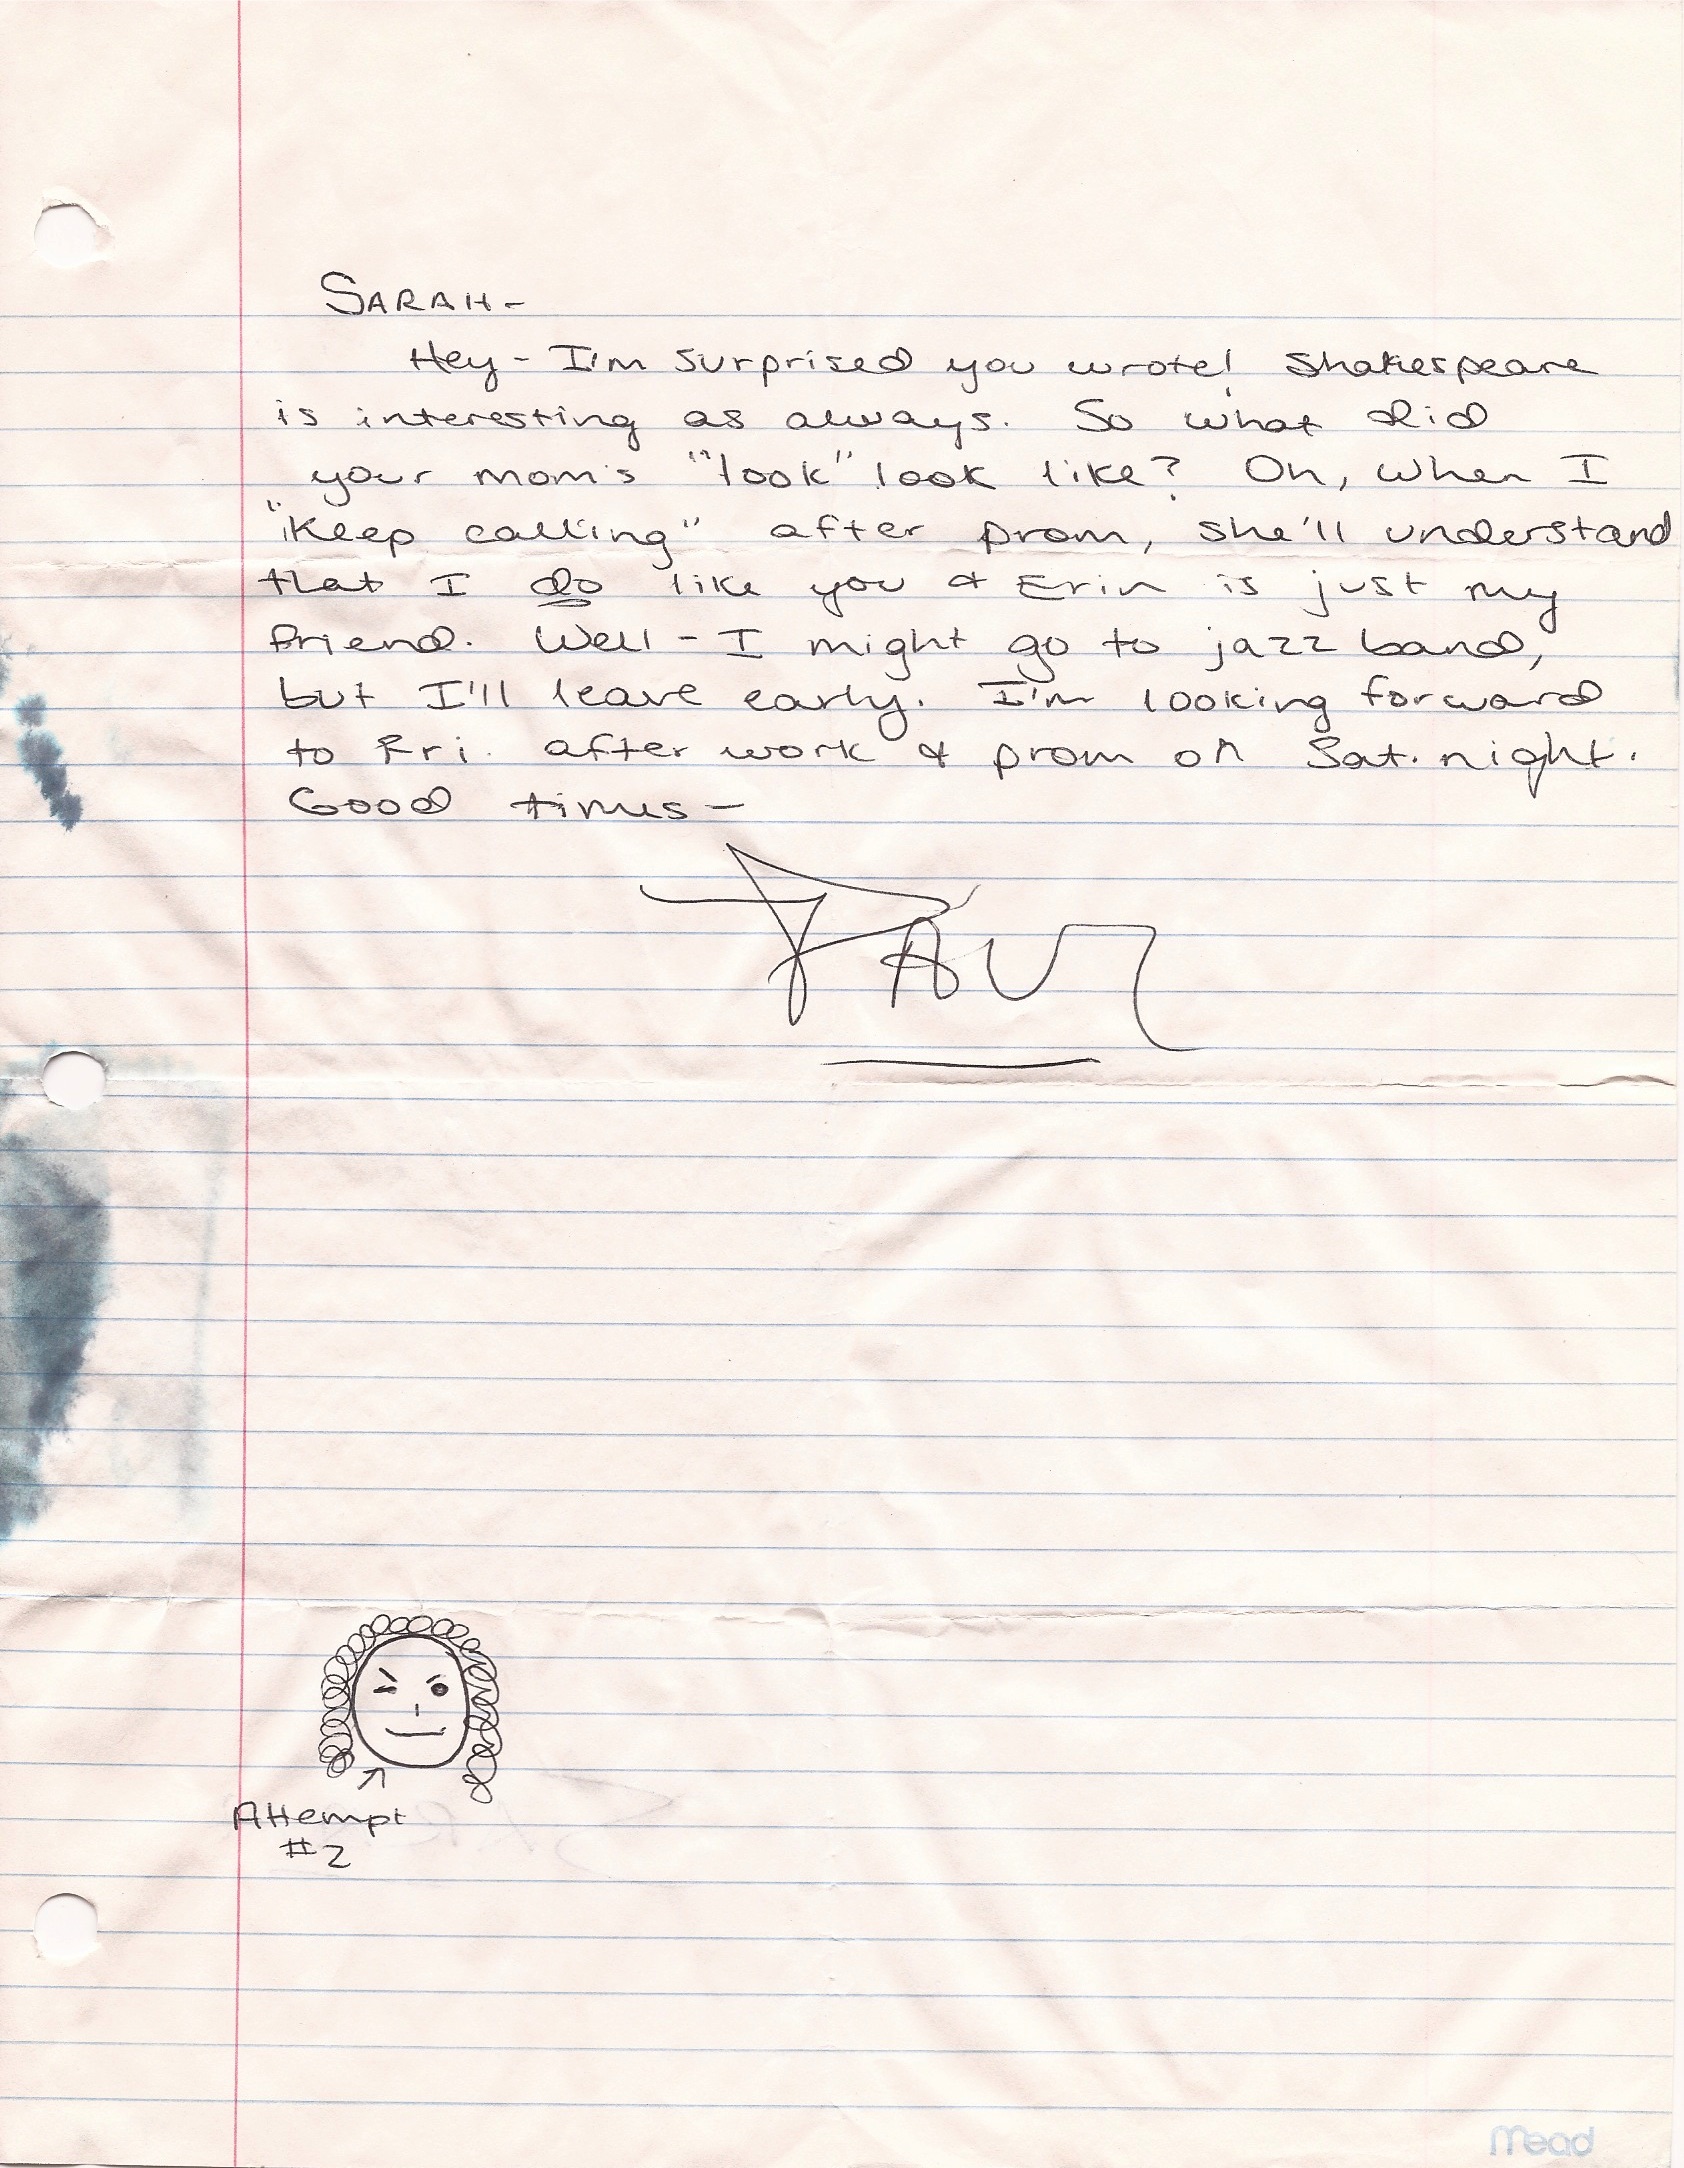 SARAH-
Hey - I'm surprised you wrote! Shakespeare
is interesting as always. So what did
your mom's "look" look like? Oh, when I
"keep calling" after prom, she'll understand
that I do like you & Erin is just my
friend. Well - I might go to jazz band,
but I'll leave early. I'm looking forward
to Fri. after work & prom on Sat. night.
Good times-
PAUL
Attempt
#2
Mead